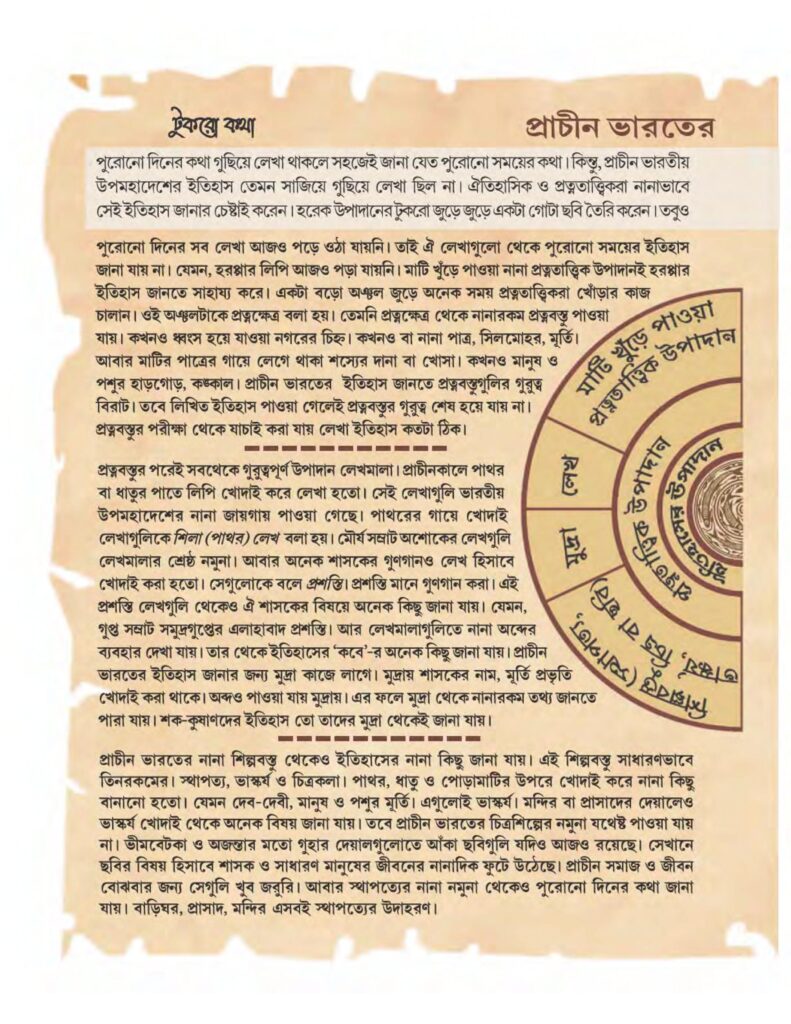 টুকরো কথা
প্রাচীন ভারতের
পুরোনো দিনের কথা গুছিয়ে লেখা থাকলে সহজেই জানা যেত পুরোনো সময়ের কথা। কিন্তু, প্রাচীন ভারতীয়
উপমহাদেশের ইতিহাস তেমন সাজিয়ে গুছিয়ে লেখা ছিল না। ঐতিহাসিক ও প্রত্নতাত্ত্বিকরা নানাভাবে
সেই ইতিহাস জানার চেষ্টাই করেন। হরেক উপাদানের টুকরো জুড়ে জুড়ে একটা গোটা ছবি তৈরি করেন। তবুও
পুরোনো দিনের সব লেখা আজও পড়ে ওঠা যায়নি। তাই ঐ লেখাগুলো থেকে পুরোনো সময়ের ইতিহাস
জানা যায় না। যেমন, হরপ্পার লিপি আজও পড়া যায়নি। মাটি খুঁড়ে পাওয়া নানা প্রত্নতাত্ত্বিক উপাদানই হরপ্পার
ইতিহাস জানতে সাহায্য করে। একটা বড়ো অঞ্চল জুড়ে অনেক সময় প্রত্নতাত্ত্বিকরা খোঁড়ার কাজ
চালান। ওই অঞ্চলটাকে প্রত্নক্ষেত্র বলা হয়। তেমনি প্রত্নক্ষেত্র থেকে নানারকম প্রত্নবস্তু পাওয়া
যায়। কখনও ধ্বংস হয়ে যাওয়া নগরের চিহ্ন। কখনও বা নানা পাত্র, সিলমোহর, মূর্তি।
আবার মাটির পাত্রের গায়ে লেগে থাকা শস্যের দানা বা খোসা। কখনও মানুষ ও
পশুর হাড়গোড়, কঙ্কাল। প্রাচীন ভারতের ইতিহাস জানতে প্রত্নবস্তুগুলির গুরুত্ব
বিরাট। তবে লিখিত ইতিহাস পাওয়া গেলেই প্রত্নবস্তুর গুরুত্ব শেষ হয়ে যায় না।
প্রত্নবস্তুর পরীক্ষা থেকে যাচাই করা যায় লেখা ইতিহাস কতটা ঠিক।
প্রত্নবস্তুর পরেই সবথেকে গুরুত্বপূর্ণ উপাদান লেখমালা। প্রাচীনকালে পাথর
বা ধাতুর পাতে লিপি খোদাই করে লেখা হতো। সেই লেখাগুলি ভারতীয়
উপমহাদেশের নানা জায়গায় পাওয়া গেছে। পাথরের গায়ে খোদাই
লেখাগুলিকে শিলা (পাথর) লেখ বলা হয়। মৌর্য সম্রাট অশোকের লেখগুলি
লেখমালার শ্রেষ্ঠ নমুনা। আবার অনেক শাসকের গুণগানও লেখ হিসাবে
খোদাই করা হতো। সেগুলোকে বলে প্রশস্তি। প্রশস্তি মানে গুণগান করা। এই
প্রশস্তি লেখগুলি থেকেও ঐ শাসকের বিষয়ে অনেক কিছু জানা যায়। যেমন,
গুপ্ত সম্রাট সমুদ্রগুপ্তের এলাহাবাদ প্রশস্তি। আর লেখমালাগুলিতে নানা অব্দের
ব্যবহার দেখা যায়। তার থেকে ইতিহাসের ‘কবে’-র অনেক কিছু জানা যায়। প্রাচীন
ভারতের ইতিহাস জানার জন্য মুদ্রা কাজে লাগে। মুদ্রায় শাসকের নাম, মূর্তি প্রভৃতি
খোদাই করা থাকে। অব্দও পাওয়া যায় মুদ্রায়। এর ফলে মুদ্রা থেকে নানারকম তথ্য জানতে
পারা যায়। শক-কুষাণদের ইতিহাস তো তাদের মুদ্রা থেকেই জানা যায়।
প্রাচীন ভারতের নানা শিল্পবস্তু থেকেও ইতিহাসের নানা কিছু জানা যায়। এই শিল্পবস্তু সাধারণভাবে
তিনরকমের। স্থাপত্য, ভাস্কর্য ও চিত্রকলা। পাথর, ধাতু ও পোড়ামাটির উপরে খোদাই করে নানা কিছু
বানানো হতো। যেমন দেব-দেবী, মানুষ ও পশুর মূর্তি। এগুলোই ভাস্কর্য। মন্দির বা প্রাসাদের দেয়ালেও
ভাস্কর্য খোদাই থেকে অনেক বিষয় জানা যায়। তবে প্রাচীন ভারতের চিত্রশিল্পের নমুনা যথেষ্ট পাওয়া যায়
না। ভীমবেটকা ও অজন্তার মতো গুহার দেয়ালগুলোতে আঁকা ছবিগুলি যদিও আজও রয়েছে। সেখানে
ছবির বিষয় হিসাবে শাসক ও সাধারণ মানুষের জীবনের নানাদিক ফুটে উঠেছে। প্রাচীন সমাজ ও জীবন
বোঝবার জন্য সেগুলি খুব জরুরি। আবার স্থাপত্যের নানা নমুনা থেকেও পুরোনো দিনের কথা জানা
যায়। বাড়িঘর, প্রাসাদ, মন্দির এসবই স্থাপত্যের উদাহরণ।
মাটি খুঁড়ে পাওয়া
প্রত্নতাত্ত্বিক উপাদান
লেখ
মুদ্রা
শিল্পবস্তু (স্থাপত্য,
ভাস্কর্য, চিত্র বা ছবি)
প্রত্নতাত্ত্বিক উপাদান
ইতিহাসের উপাদান